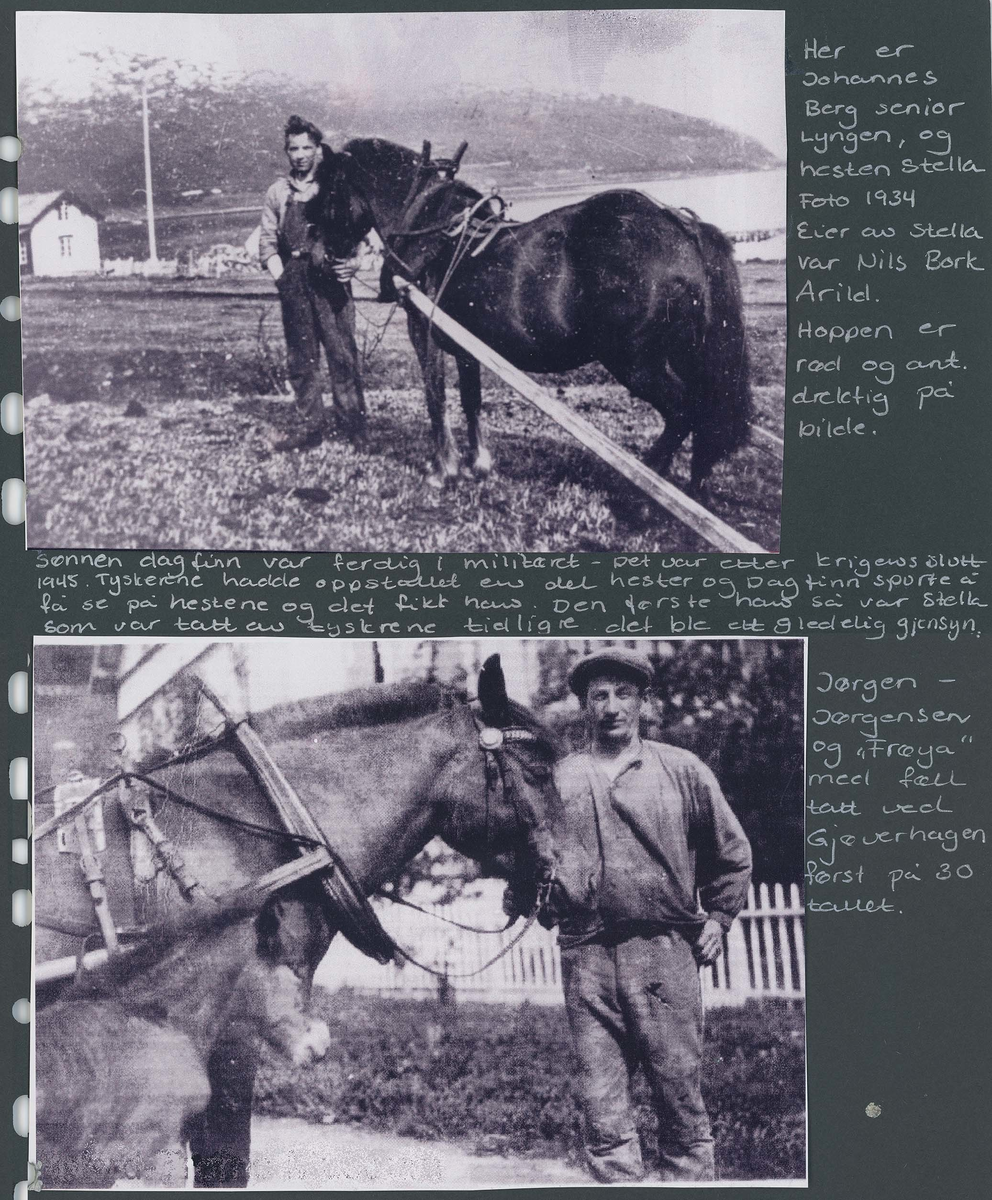 Her er
Johannes
Berg senior
Lyngen, og
hesten Stella
Foto 1934
Eier av Stella
var Nils Bork
Arild.
Hoppen er
rød og ant.
drektig på
bilde.
Sønnen dagfinn var ferdig i militæret - Det var etter krigens slutt
1945. Tyskerene hadde oppstallet en del hester og Dagfinn spurte å
få se på hestene og det fikk han. Den første han så var Stella
som var tatt av tyskrene tidligre. det ble ett gledelig gjensyn.
Jørgen -
Jørgensen
og „Frøya"
med føll
tatt ved
Gjæverhagen
først på 30
tallet.